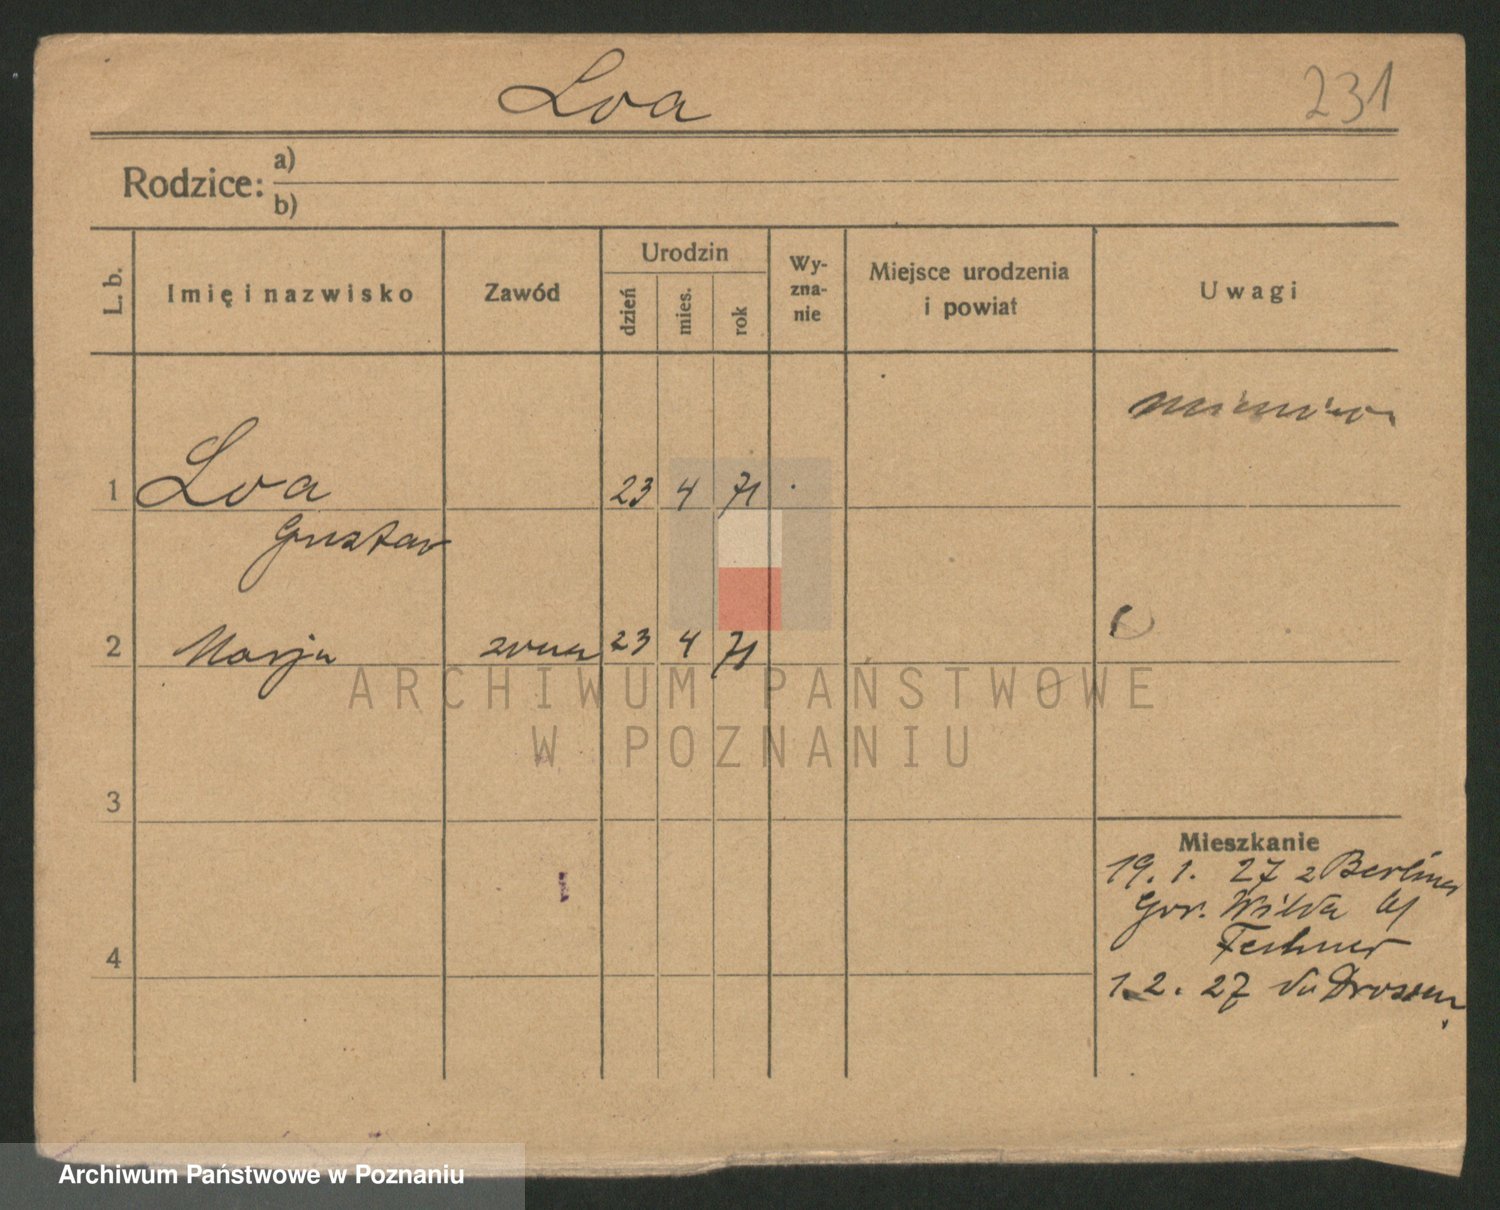 Loa
231
Rodzice: a)
b)
L. b.
Imię i nazwisko
Zawód
Urodzin
dzień
mies.
rok
Wy-
zna-
nie
Miejsce urodzenia
i powiat
Uwagi
1 Loa 23 4 71
Gustav
2 Marja 23 4 71
3
4
Mieszkanie
19. 1. 27 z Berlina
Gor. Wilda
1.2. 27 do Drossen
ARCHIWUM PAŃSTWOWE
W POZNANIU
Archiwum Państwowe w Poznaniu